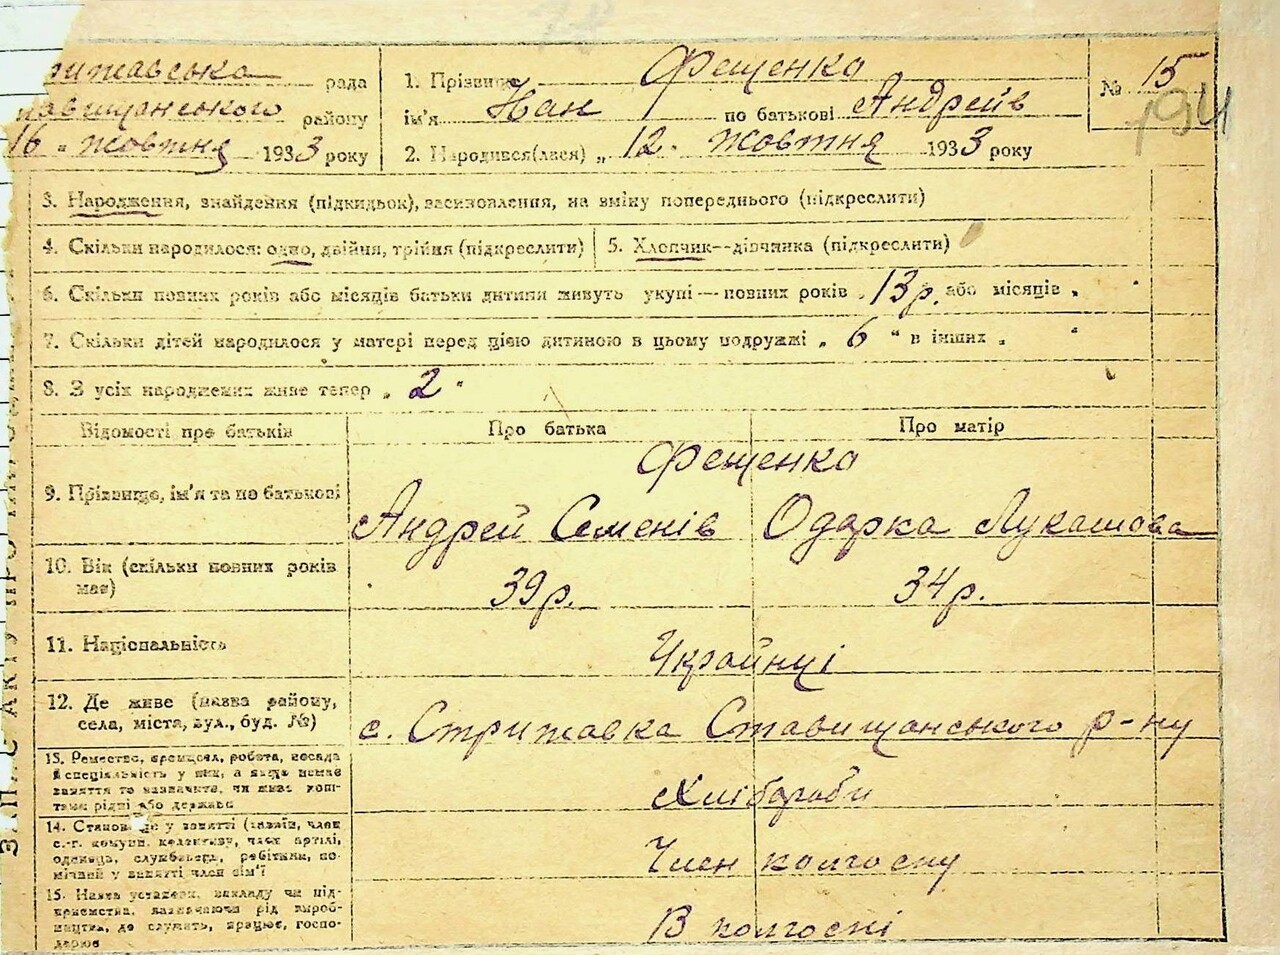 18
рижавська рада
тавищанського району
16 " жовтня 1933 року
1. Прізвище Фещенко
ім'я Нан по батькові Андреїв
2. Народився(лася) „ 12. жовтня 1933 року
№ 15
194
3. Народження, знайдення (підкидьок), засиновлення, на зміну попереднього (підкреслити)
4. Скільки народилося: одно, двійня, трійня (підкреслити)
5. Хлопчик—дівчинка (підкреслити)
6. Скільки повних років або місяців батьки дитини живуть укупі — повних років „ 13 р. або місяців „
7. Скільки дітей народилося у матері перед цією дитиною в цьому подружжі „ 6 " в інших „ "
8. З усіх народжених живе тепер „ 2 "
Відомості про батьків Про батька Про матір
9. Прізвище, ім'я та по батькові
Фещенко
Андрей Семенів Одарка Лукашова
10. Вік (скільки повних років має)
39 р. 34 р.
11. Національність Українці
12. Де живе (назва району,
села, міста, вул., буд. №)
с. Стрижавка Ставищанського р-ну
Ремество, промисел, робота, посада
й спеціальність у них, а якщо немає
заняття то зазначити, чи живе коштами рідні або держави
Хлібороби
14. Становище у занятті (хазяїн, член
с.-г. комуни, колективу, член артілі,
одинець, службовець, робітник, помічний у занятті член сім'ї
Член колгоспу
15. Назва установи, закладу чи підприємства, зазначаючи рід виробництва, де служить, працює, господарює
В колгоспі